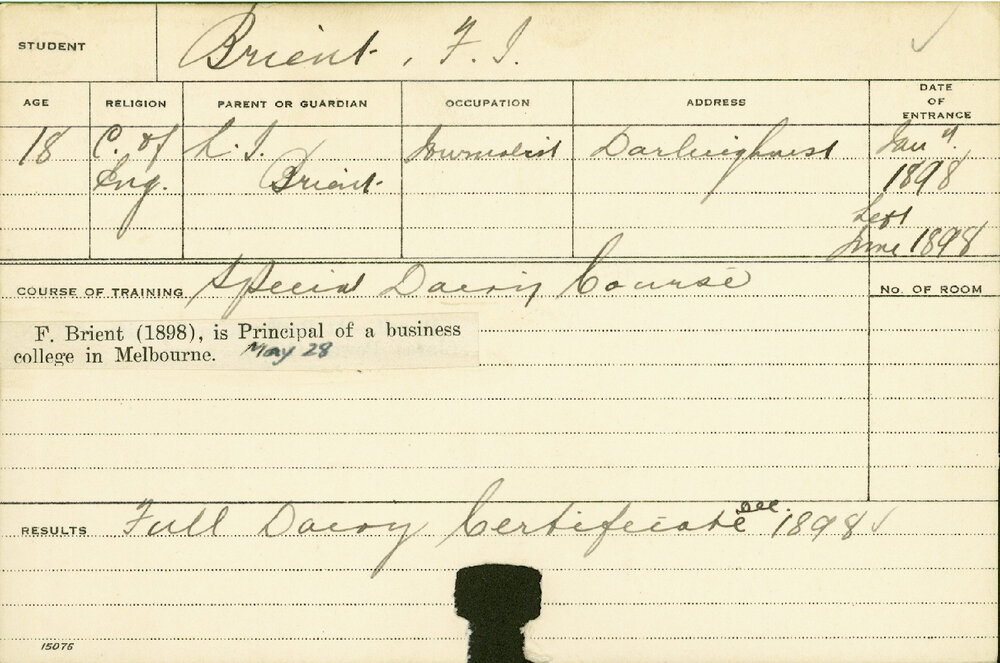 STUDENT Brient, F. J.
AGE RELIGION PARENT OR GUARDIAN OCCUPATION ADDRESS DATE OF ENTRANCE
18 C. of L. J. Journalist Darlinghurst Jan
Eng. Brient 1898
Left
June 1898
COURSE OF TRAINING Special Dairy Course No. OF ROOM
F. Brient (1898), is Principal of a business
college in Melbourne. May 28
RESULTS Full Dairy Certificate Dec. 1898
15076